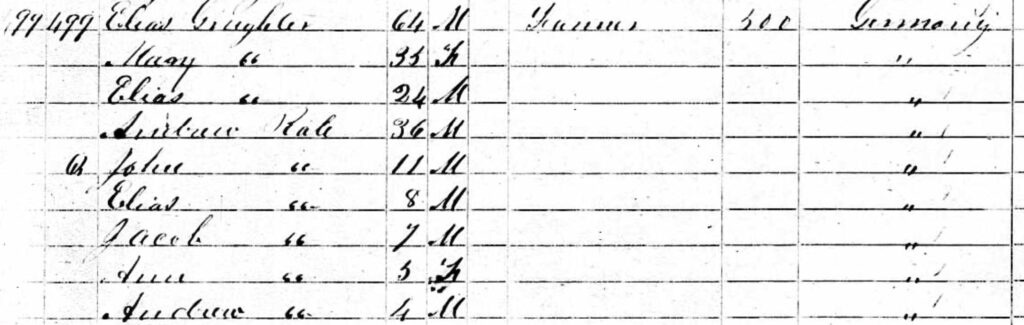 499 499 Elias Greighter 64 M Farmer 500 Germany
Mary " 55 F "
Elias " 24 M "
Andrew Kale 36 M "
John " 11 M "
Elias " 8 M "
Jacob " 7 M "
Ann " 5 F "
Andrew " 4 M "